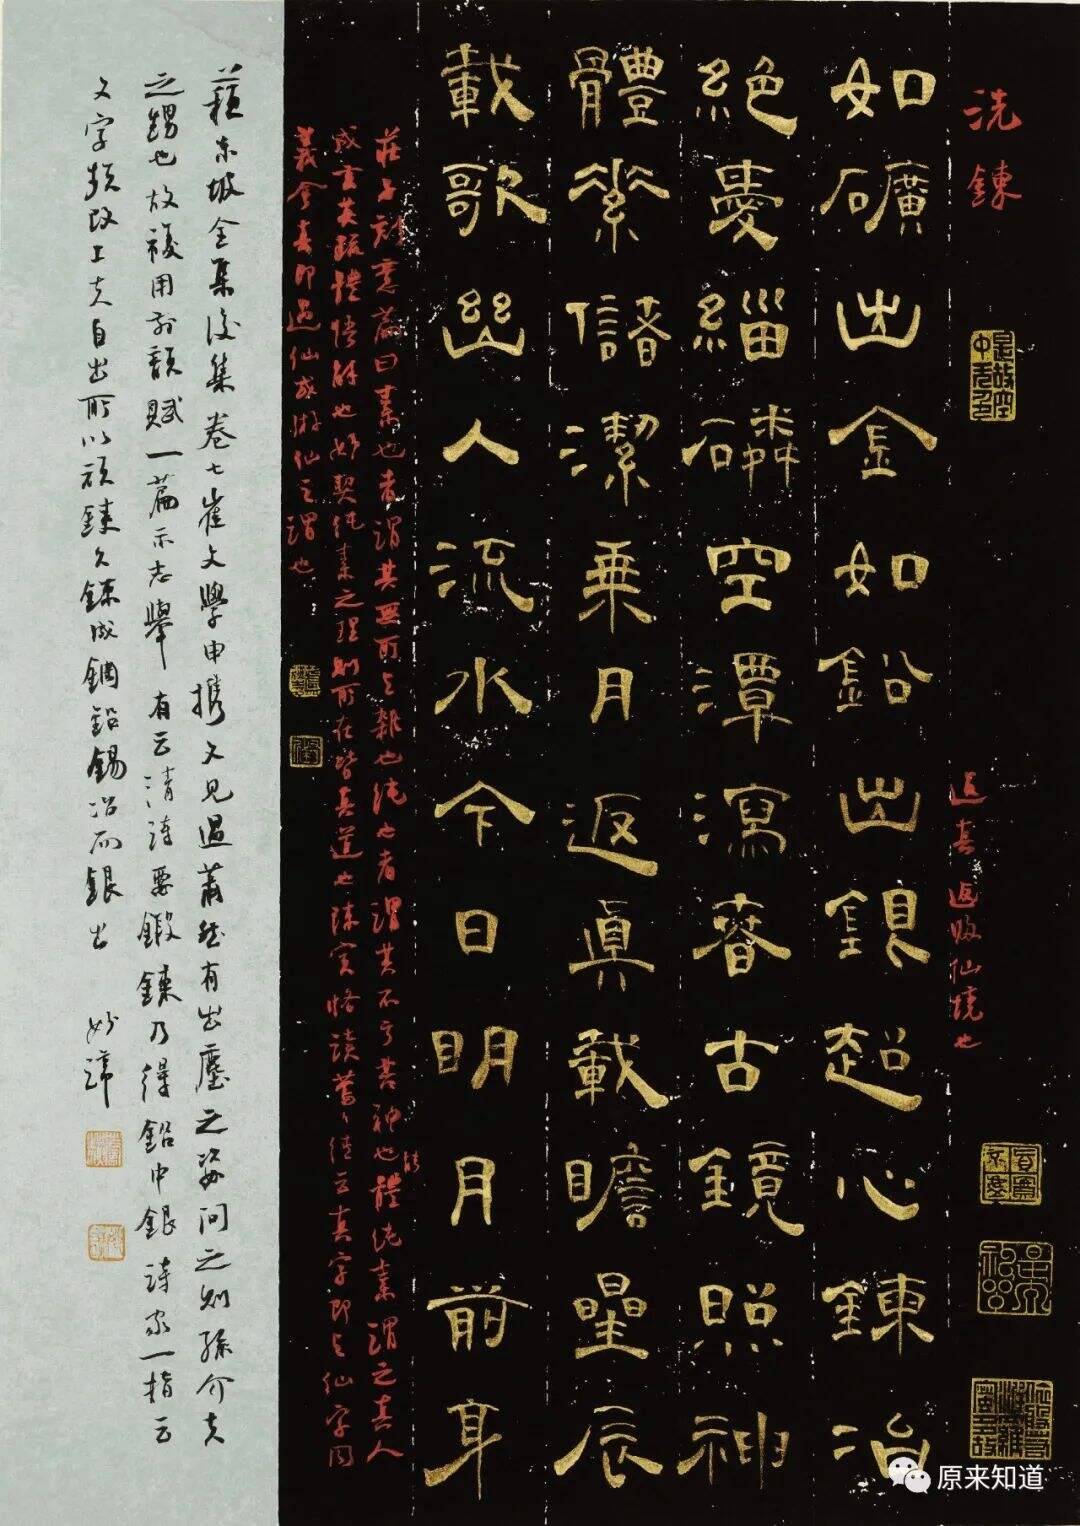 洗鍊
返真返收仙境也
如礦出金如鉛出銀超心鍊冶
絕憂緇磷空潭瀉春古鏡照神
體素儲潔乘月返眞載瞻星辰
載歌幽人流水今日明月前身
莊子刻意篇曰素也者謂其無所與雜也純也者謂其不亏其神也能體純素謂之真人
成玄英疏體悟解也妙契純素之理則所在皆真道也陳寅恪讀鶯鶯傳云真字即與仙字同
義會真即遇仙或游仙之謂也
蘇東坡全集後集卷七崔文學甲攜文見過蕭然有出塵之姿問之則孫介夫
之甥也故復用前韻賦一篇示志舉有云清詩要鍛鍊乃得鉛中銀詩家一指云
文字頻改工夫自出所以頑鍊久鍊成鋼鉛錫冶而銀出